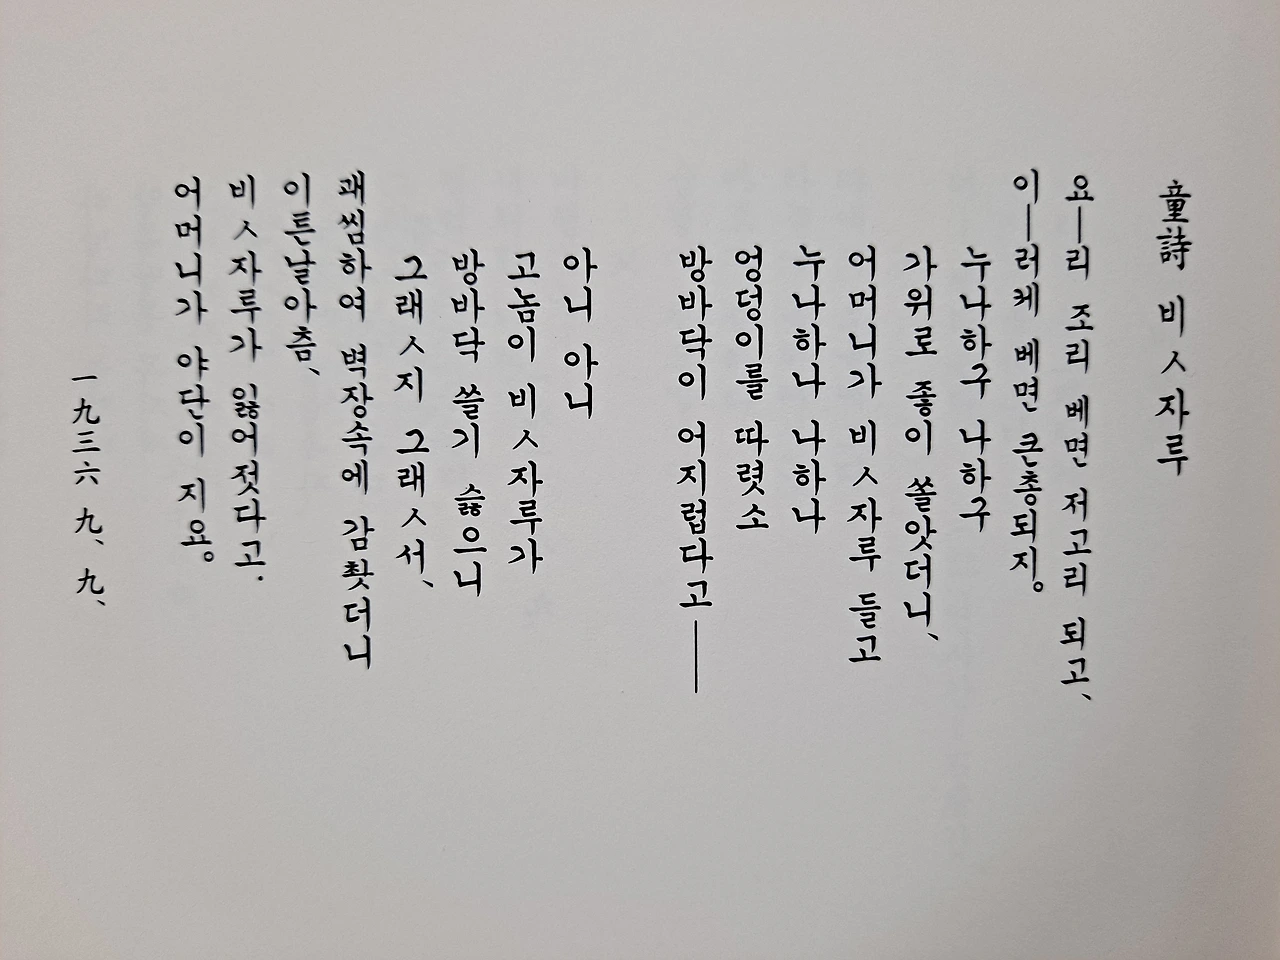 童詩 비ㅅ자루
요―리 조리 베면 저고리 되고、
이―러케 베면 큰총되지。
누나하구 나하구
가위로 좋이 쏠앗더니、
어머니가 비ㅅ자루 들고
누나하나 나하나
엉덩이를 따렷소
방바닥이 어지럽다고――
아니 아니
고놈이 비ㅅ자루가
방바닥 쓸기 슳으니
그래ㅅ지 그래ㅅ서、
괘씸하여 벽장속에 감촷더니
이튼날아츰、
비ㅅ자루가 잃어젓다고.
어머니가 야단이 지요。
一九三六 九、九、